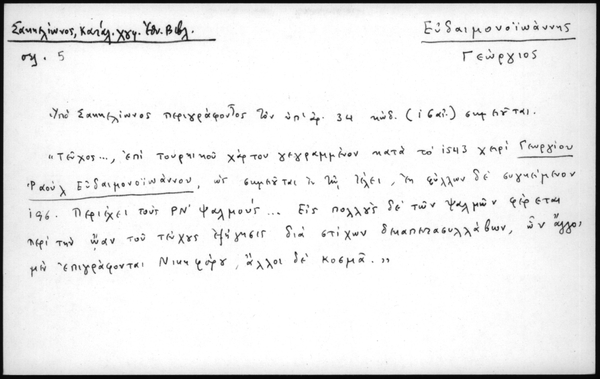 Σακκελίωνος, Κατάλ. χγφ. Ἐθν. Βιβλ.
Εὐδαιμονοϊωάννης
σελ. 5
Γεώργιος
Ὑπὸ Σακκελίωνος περιγράφοντος τὸν ὑπ' ἀρ. 34 κώδ. ( ) σημειοῦται.
"Τεῦχος..., ἐπὶ τουρκικοῦ χάρτου γεγραμμένον κατὰ τὸ 1543 χειρὶ Γεωργίου
Ραοὺλ Εὐδαιμονοϊωάννου, ὡς σημειοῦται ἐν τῷ τέλει, ἐκ φύλλων δὲ συγκείμενον
196. Περιέχει τοὺς ΡΝ' ψαλμούς... Εἰς πολλοὺς δὲ τῶν ψαλμῶν φέρεται
περὶ τὴν ᾤαν τοῦ τεύχους ἐξήγησις διὰ στίχων δεκαπεντασυλλάβων, ὧν ἄλλοι
μὲν ἐπιγράφονται Νικηφόρου, ἄλλοι δὲ Κοσμᾶ."